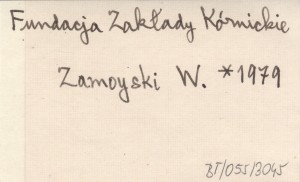 Fundacja Zakłady Kórnickie
Zamoyski W. *1979
BT/055/3045